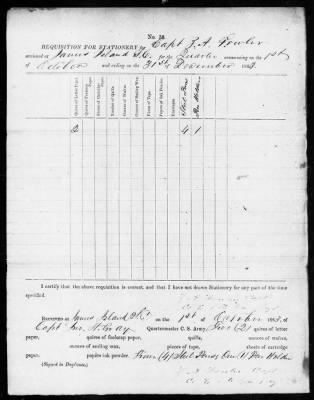 No. 38
REQUISITION FOR STATIONERY by Capt Z. A. Fowler
stationed at James Island S.C. for the Quarter commencing on the 1st
of October and ending on the 31st December 1863.
Quires of Letter Paper.
Quires of Foolscap Paper.
Number of Quills.
Ounces of Wafers.
Ounces of Sealing Wax.
Pieces of Tape.
Papers of Ink Powder.
Envelopes.
Steel Pens
Pen Holder
2 4 1
I certify that the above requisition is correct, and that I have not drawn Stationery for any part of the time
specified.
RECEIVED at James Island on the 1st of October 1863. of
Capt Quartermaster C. S. Army, Two (2) quires of letter
paper, quires of foolscap paper, quills, wafers,
ounces of sealing wax, pieces of tape, sheets of cartridge
paper, papers ink powder. Four (4) Steel Pens One (1) Pen Holder
(Signed in Duplicate.)